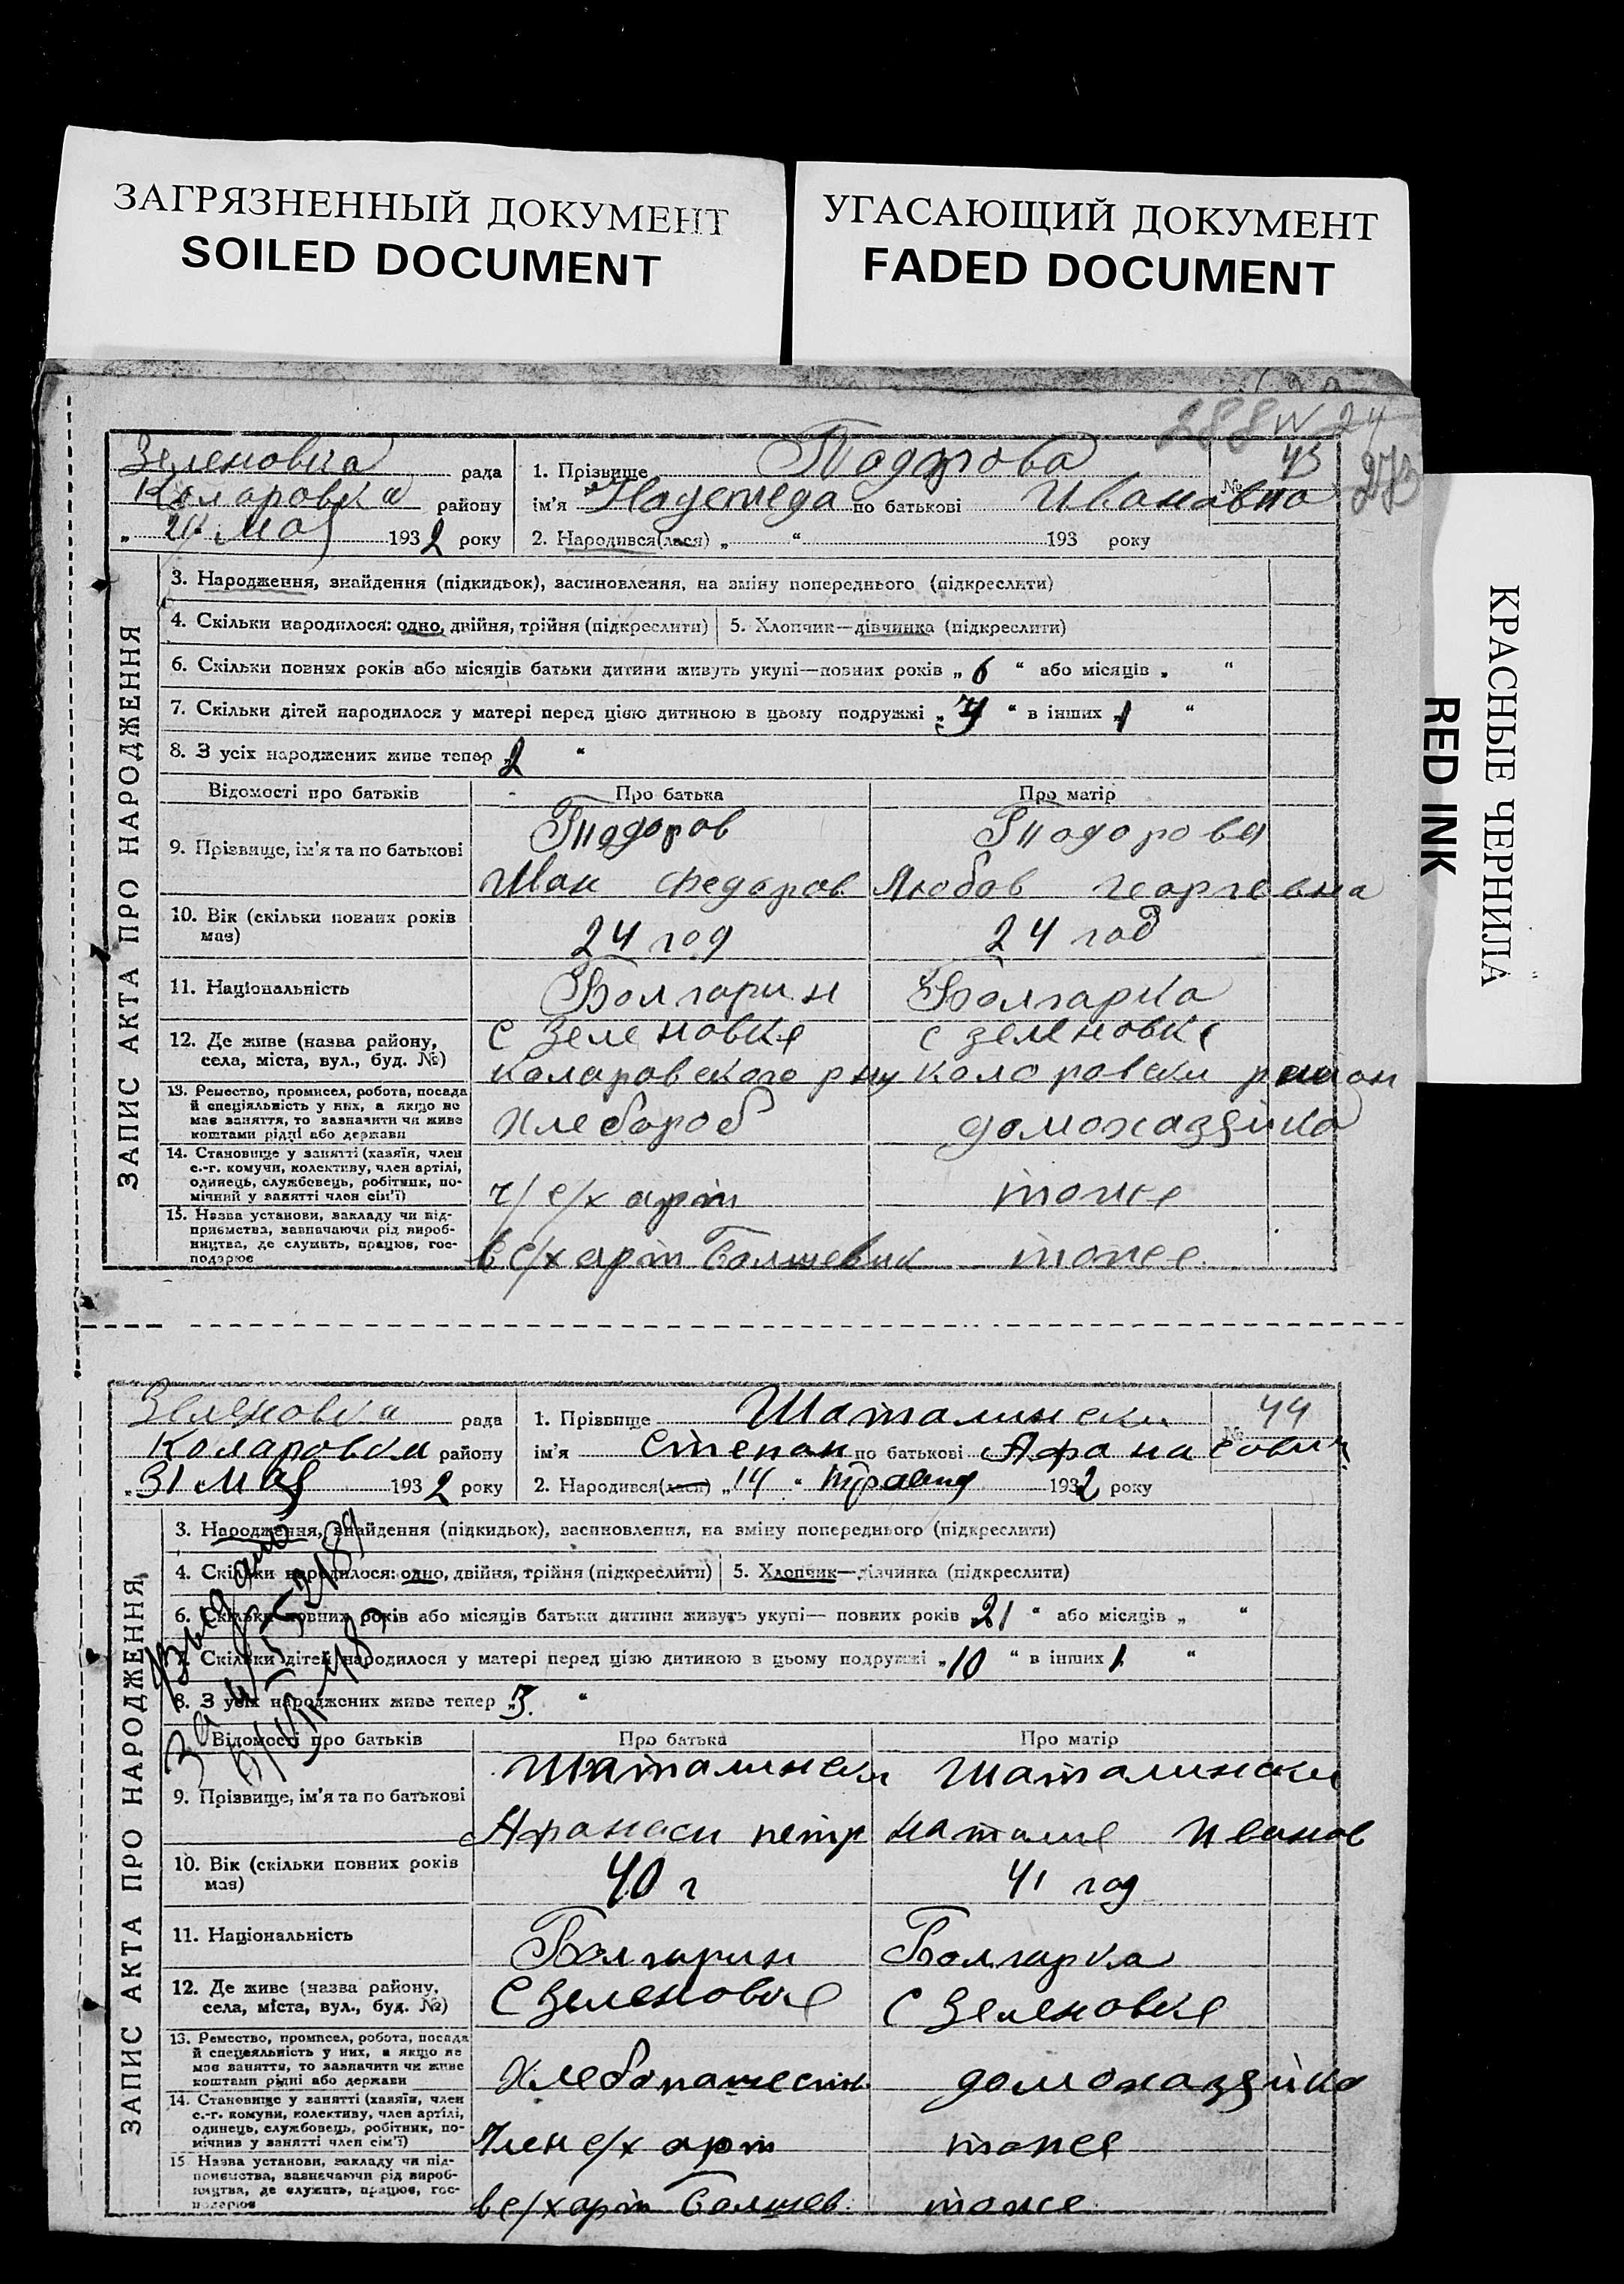 ЗАГРЯЗНЕННЫЙ ДОКУМЕНТ
SOILED DOCUMENT
УГАСАЮЩИЙ ДОКУМЕНТ
FADED DOCUMENT
КРАСНЫЕ ЧЕРНИЛА
RED INK
288 N 24
273
ЗАПИС АКТА ПРО НАРОДЖЕННЯ
Зеленовка рада
Коларовка району
„ 24 мая 1932 року
1. Прізвище Тодорова
№ 43
ім'я Надежда по батькові Ивановна
2. Народився(лася) „ “ 193 року
3. Народження, знайдення (підкидьок), засиновлення, на зміну попереднього (підкреслити)
4. Скільки народилося: одно, двійня, трійня (підкреслити) 5. Хлопчик—дівчинка (підкреслити)
6. Скільки повних років або місяців батьки дитини живуть укупі—повних років „ 6 “ або місяців „ “
7. Скільки дітей народилося у матері перед цією дитиною в цьому подружжі „ “ в інших „1 “
8. З усіх народжених живе тепер „2 “
Відомості про батьків Про батька Про матір
9. Прізвище, ім'я та по батькові Тодоров Тодорова
Иван Федоров Любов Георгевна
10. Вік (скільки повних років має) 24 год 24 год
11. Національність Болгарин Болгарка
12. Де живе (назва району, с Зеленовке с зеленовке
села, міста, вул., буд. №) Коларовского рну Колоровски район
13. Ремество, промисел, робота, посада
й спеціяльність у них, а якщо не
має заняття, то зазначити чи живе
коштами рідні або держави Хлебороб домохазяйка
14. Становище у занятті (хазяїн, член
с.-г. комуни, колективу, член артілі,
одинець, службовець, робітник, по-
мічний у занятті член сім'ї) ч/ с/х арт тоже
15. Назва установи, закладу чи під-
приємства, зазначаючи рід вироб-
ництва, де служить, працює, гос-
подарює в с/х арт Болшевик тоже
ЗАПИС АКТА ПРО НАРОДЖЕННЯ
Зеленовка рада
Коларовка району
„31 мая 1932 року
1. Прізвище Шаталински
№ 44
ім'я Степан по батькові Афанасович
2. Народився(лася) „14 “ травня 1932 року
3. Народження, знайдення (підкидьок), засиновлення, на зміну попереднього (підкреслити)
4. Скільки народилося: одно, двійня, трійня (підкреслити) 5. Хлопчик—дівчинка (підкреслити)
6. Скільки повних років або місяців батьки дитини живуть укупі— повних років „21 “ або місяців „ “
7. Скільки дітей народилося у матері перед цією дитиною в цьому подружжі „10 “ в інших „1 “
8. З усіх народжених живе тепер „5. “
Выдано
за
Відомості про батьків Про батька Про матір
9. Прізвище, ім'я та по батькові Шаталински Шаталински
Афанаси петр наталие Иванов
10. Вік (скільки повних років має) 40 г 41 год
11. Національність Болгарин Болгарка
12. Де живе (назва району, с Зеленовке с Зеленовке
села, міста, вул., буд. №)
13. Ремество, промисел, робота, посада
й спецеяльність у них, а якщо не
має заняття, то зазначити чи живе
коштами рідні або держави Хлебопашестн домохазяйка
14. Становище у занятті (хазяїн, член
с.-г. комуни, колективу, член артілі,
одинець, службовець, робітник, по-
мічний у занятті член сім'ї) Член с/х арт тоже
15 Назва установи, закладу чи під-
приємства, зазначаючи рід вироб-
ництва, де служить, працює, гос-
подарює в с/х арт Болшев. тоже